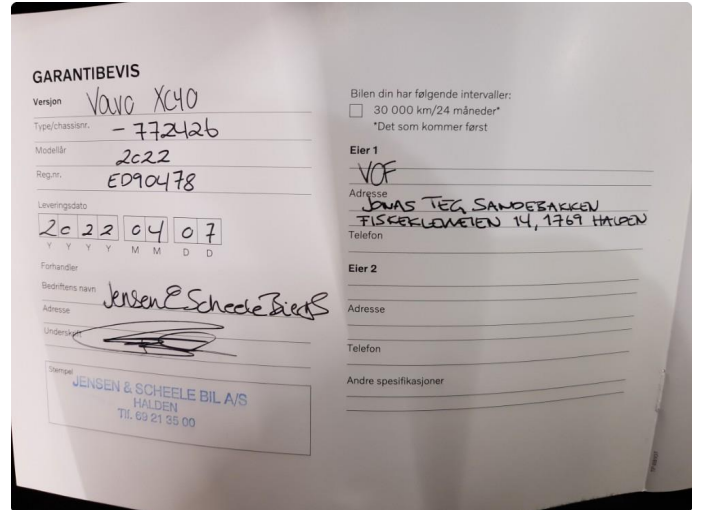 GARANTIBEVIS
Versjon Volvo XC40
Type/chassisnr. - 772426
Modellår 2022
Reg.nr. ED90478
Leveringsdato
2022 04 07
Y Y Y Y M M D D
Forhandler
Bedriftens navn Jensen & Scheele Bil AS
Adresse
Underskrift
Stempel
JENSEN & SCHEELE BIL A/S
HALDEN
Tlf. 69 21 35 00
Bilen din har følgende intervaller:
30 000 km/24 måneder*
*Det som kommer først
Eier 1
VOF
Adresse
JONAS TEG SANDEBAKKEN
14, 1769 HALDEN
Telefon
Eier 2
Adresse
Telefon
Andre spesifikasjoner